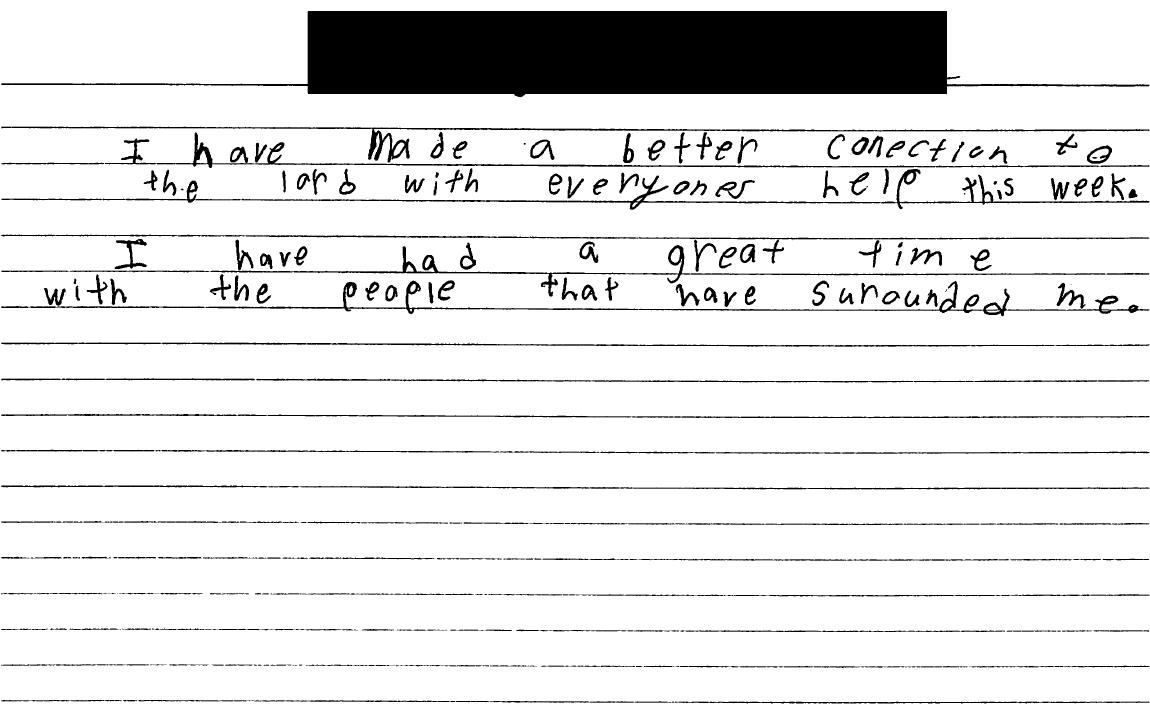 I have made a better conection to
the lord with everyones help this week.
I have had a great time
with the people that have surounded me.